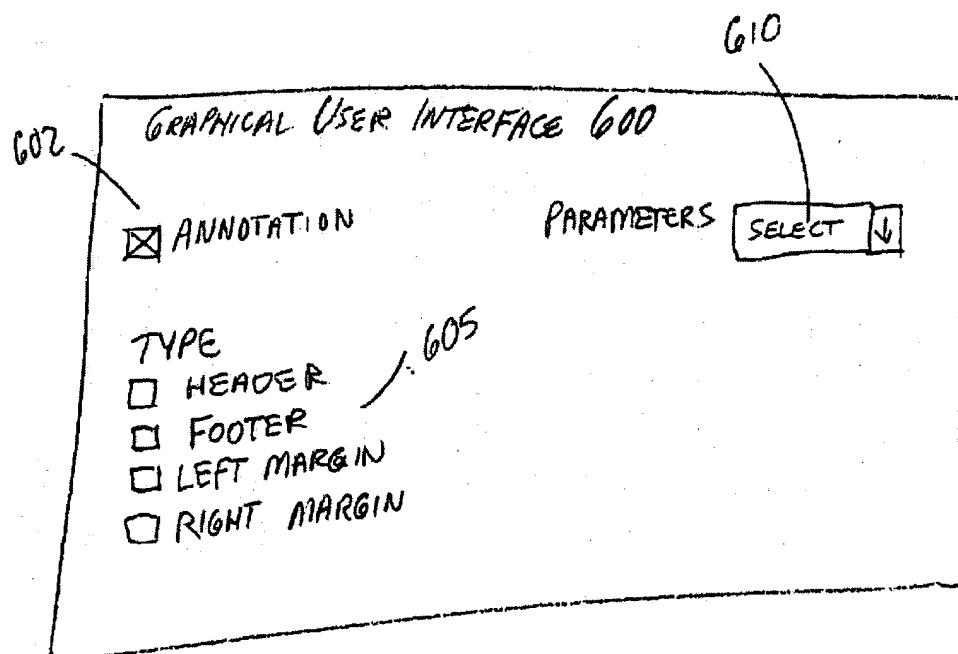 610
GRAPHICAL USER INTERFACE 600
602
ANNOTATION
PARAMETERS SELECT
TYPE
605
HEADER
FOOTER
LEFT MARGIN
RIGHT MARGIN